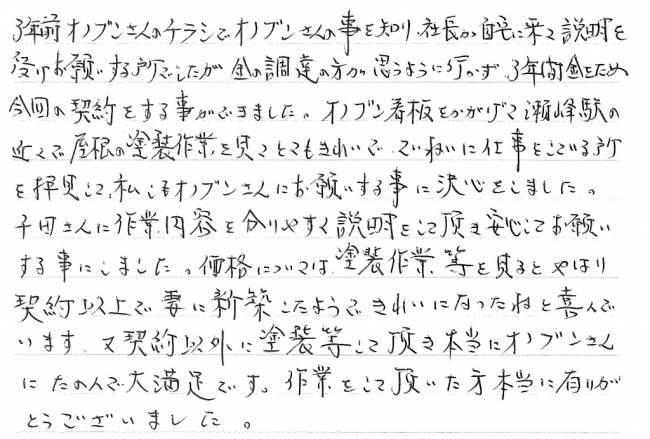 3年前オノブンさんのチラシでオノブンさんの事を知り、社長が自宅に来て説明を
受けお願いする所でしたが金の調達の方が思うように行かず、3年間金をため
今回の契約をする事ができました。オノブン看板をかかげて瀬峰駅の
近くで屋根の塗装作業を見てとてもきれいで、ていねいに仕事をしている所
を拝見して、私しもオノブンさんにお願いする事に決心をしました。
千田さんに作業内容を分りやすく説明をして頂き安心してお願い
する事にしました。価格については、塗装作業、等を見るとやはり
契約以上で妻に新築したようできれいになったねと喜んで
います、又契約以外に塗装等して頂き本当にオノブンさん
にたのんで大満足です。作業をして頂いた方本当に有りが
とうございました。